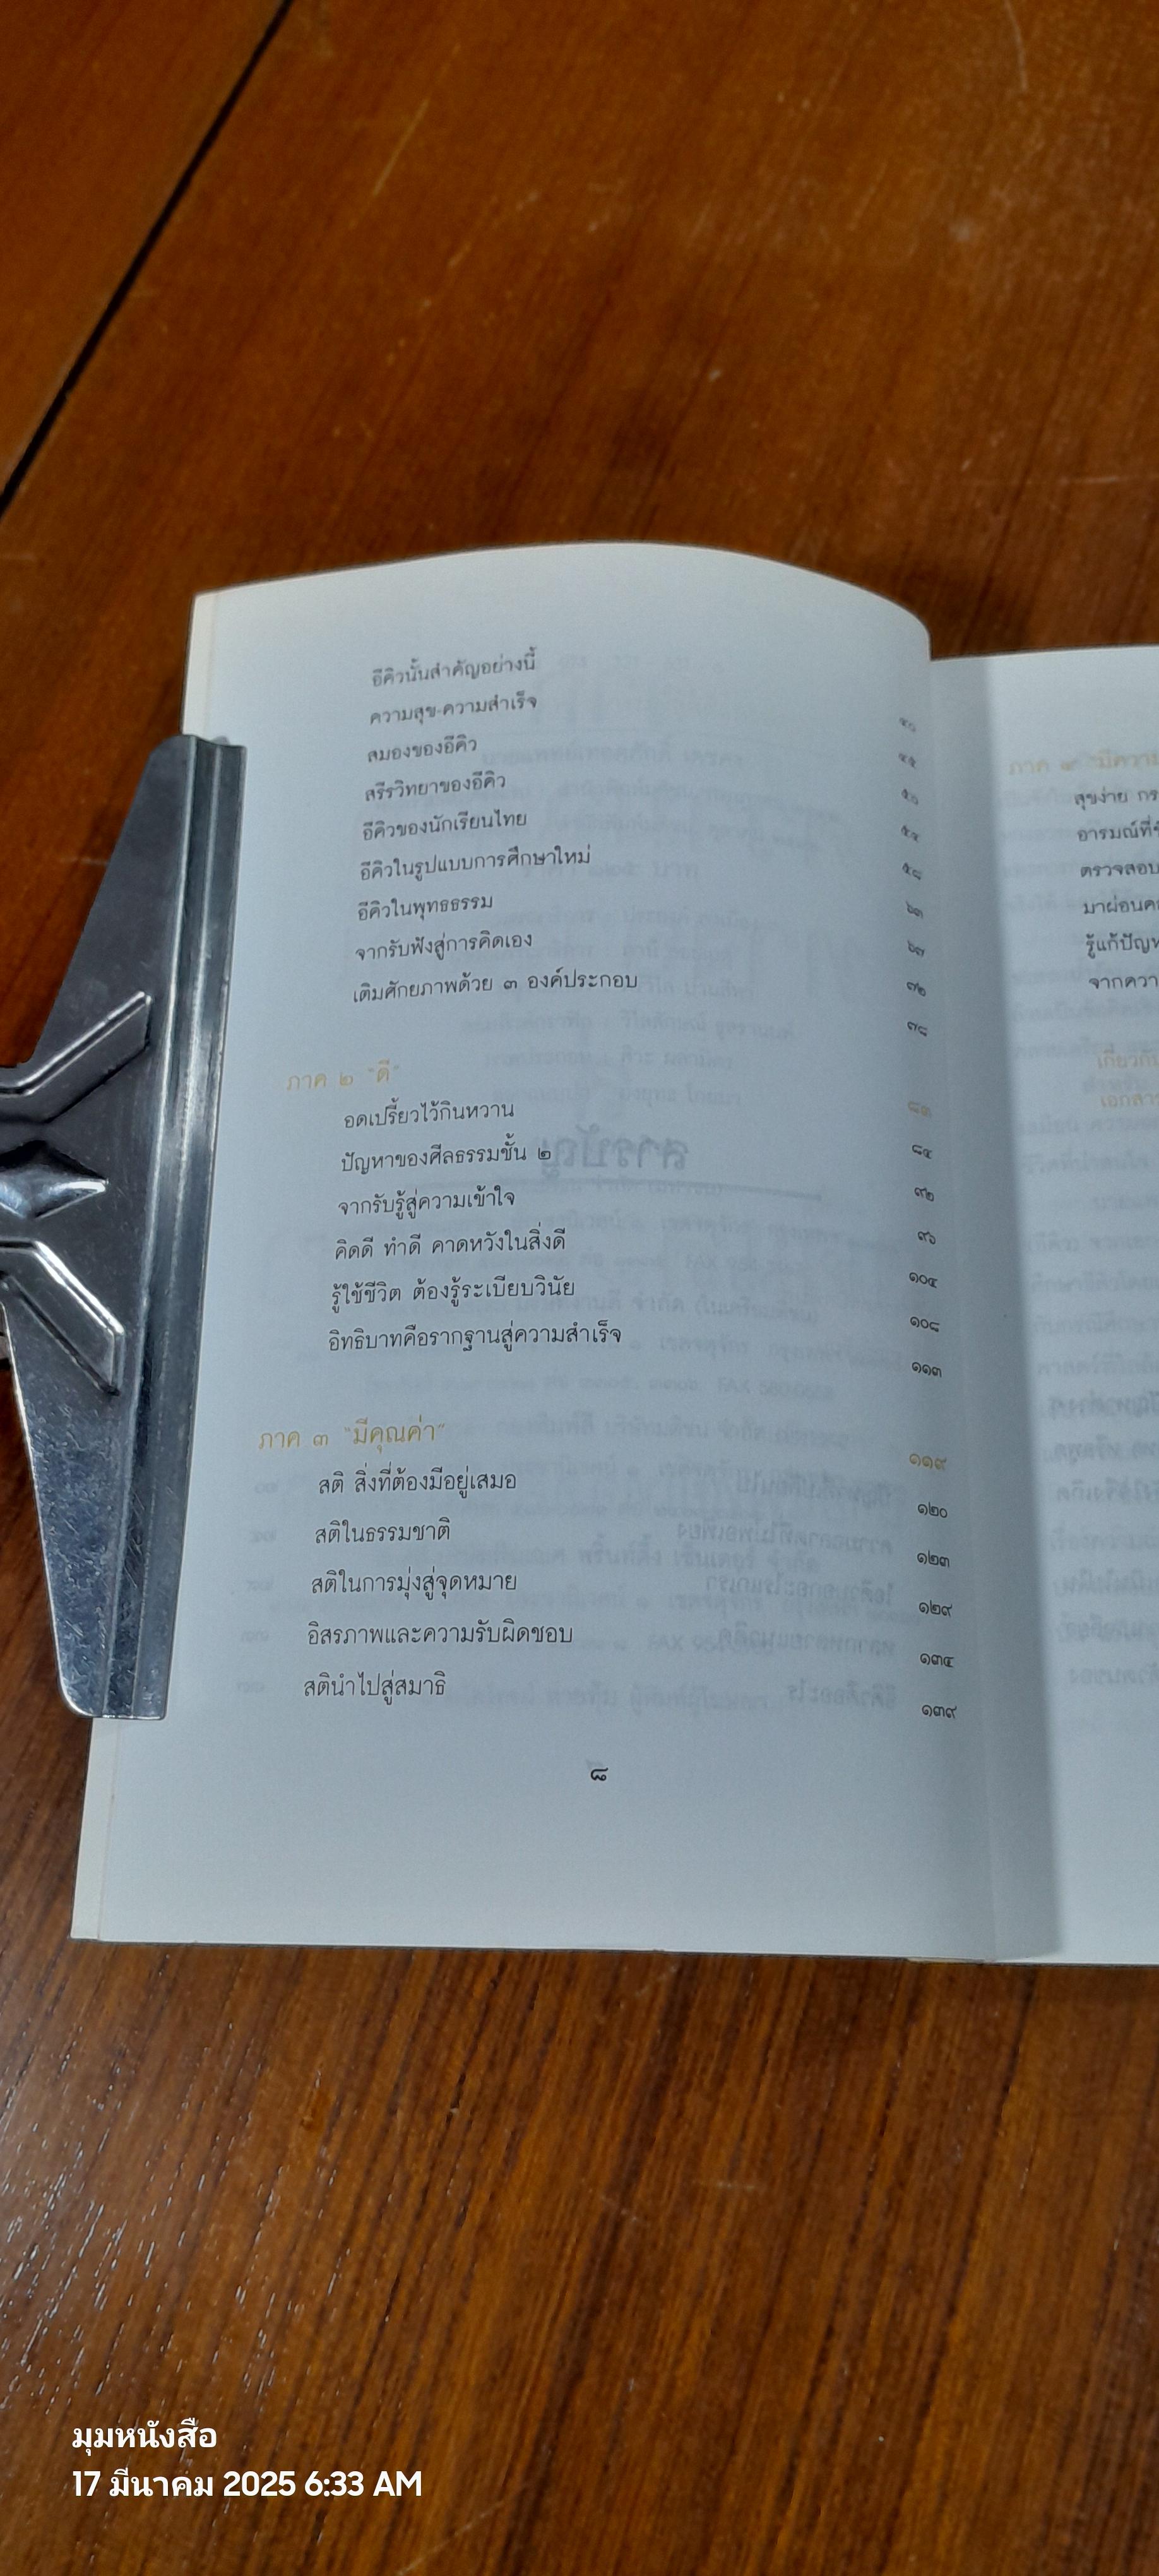 อีคิวนั้นสำคัญอย่างนี้ ๔๐
ความสุข-ความสำเร็จ ๔๕
สมองของอีคิว ๕๐
สรีรวิทยาของอีคิว ๕๔
อีคิวของนักเรียนไทย ๕๘
อีคิวในรูปแบบการศึกษาใหม่ ๖๓
อีคิวในพุทธธรรม ๖๗
จากรับฟังสู่การคิดเอง ๗๒
เติมศักยภาพด้วย ๓ องค์ประกอบ ๗๘
ภาค ๒ "ดี" ๘๓
อดเปรี้ยวไว้กินหวาน ๘๔
ปัญหาของศีลธรรมชั้น ๒ ๙๒
จากรับรู้สู่ความเข้าใจ ๙๖
คิดดี ทำดี คาดหวังในสิ่งดี ๑๐๔
รู้ใช้ชีวิต ต้องรู้ระเบียบวินัย ๑๐๘
อิทธิบาทคือรากฐานสู่ความสำเร็จ ๑๑๓
ภาค ๓ "มีคุณค่า" ๑๑๙
สติ สิ่งที่ต้องมีอยู่เสมอ ๑๒๐
สติในธรรมชาติ ๑๒๓
สติในการมุ่งสู่จุดหมาย ๑๒๙
อิสรภาพและความรับผิดชอบ ๑๓๔
สตินำไปสู่สมาธิ ๑๓๙
๘
ภาค ๔ "มีความ
สุขง่าย
อารมณ์ที่
ตรวจสอบ
มาผ่อนค
รู้แก้ปัญห
จากควา
เกี่ยวกับ
เอกสาร
มุมหนังสือ
17 มีนาคม 2025 6:33 AM